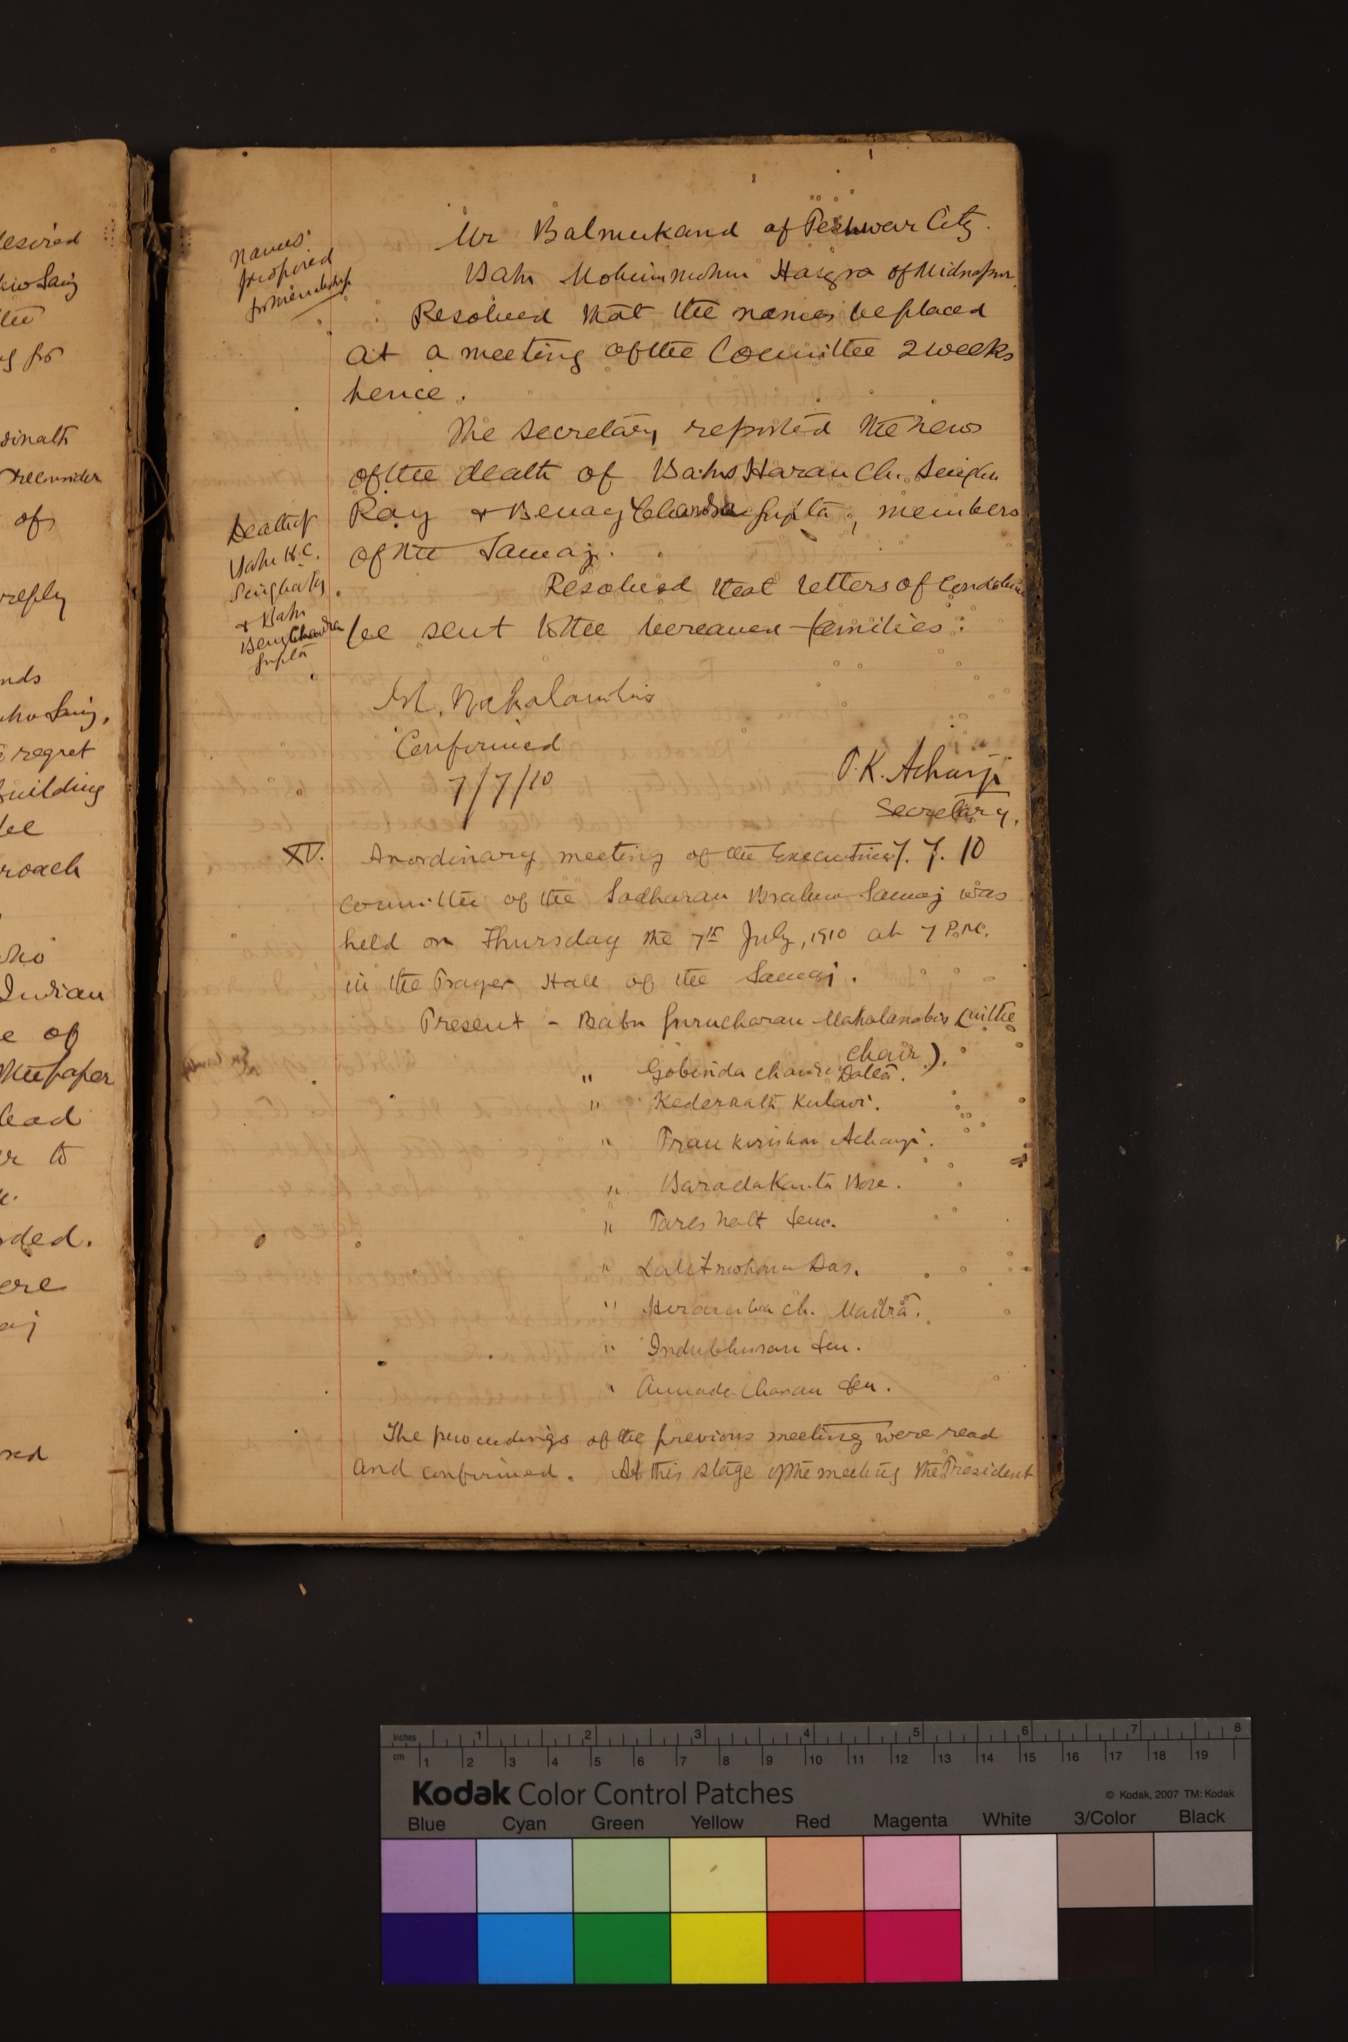 desired
for
of
reply
regret
Building
roach
Indian
e of
the paper
lead
er to
ded.
ere
Names
proposed
for membership
Mr Balmukand of Peshwar City.
Babu Mohinimohun Hazra of Midnapur.
Resolved that the names be placed
at a meeting of the Committee 2 weeks
hence.
The Secretary reported the news
of the death of Babus Haran Ch. Singha
Ray & Benay Chandra Gupta, members
of the Samaj.
Death of
Babu H.C.
Singha Ray
& Babu
Benay Chandra
Gupta
Resolved that letters of condolence
be sent to the bereaved families.
Mahalanobis
Confirmed
7/7/10
P.K. Acharji
Secretary.
XV. An ordinary meeting of the Executive 7. 7. 10
Committee of the Sadharan Brahmo Samaj was
held on Thursday the 7th July, 1910 at 7 P.M.
in the Prayer Hall of the Samaj.
Present - Babu Gurucharan Mahalanobis (in the
chair).
" Gobinda Chandra Datta.
" Kedernath Kulavi.
" Pran Krishna Acharji.
" Baradakanta Bose.
" Pares Nath Sen.
" Lalitmohan Das.
" Heramba Ch. Maitra.
" Indubhusan Sen.
" Annada Charan Sen.
The proceedings of the previous meeting were read
and confirmed. At this stage of the meeting the President
inches 1 2 3 4 5 6 7 8
cm 1 2 3 4 5 6 7 8 9 10 11 12 13 14 15 16 17 18 19
Kodak Color Control Patches
© Kodak, 2007 TM: Kodak
Blue Cyan Green Yellow Red Magenta White 3/Color Black